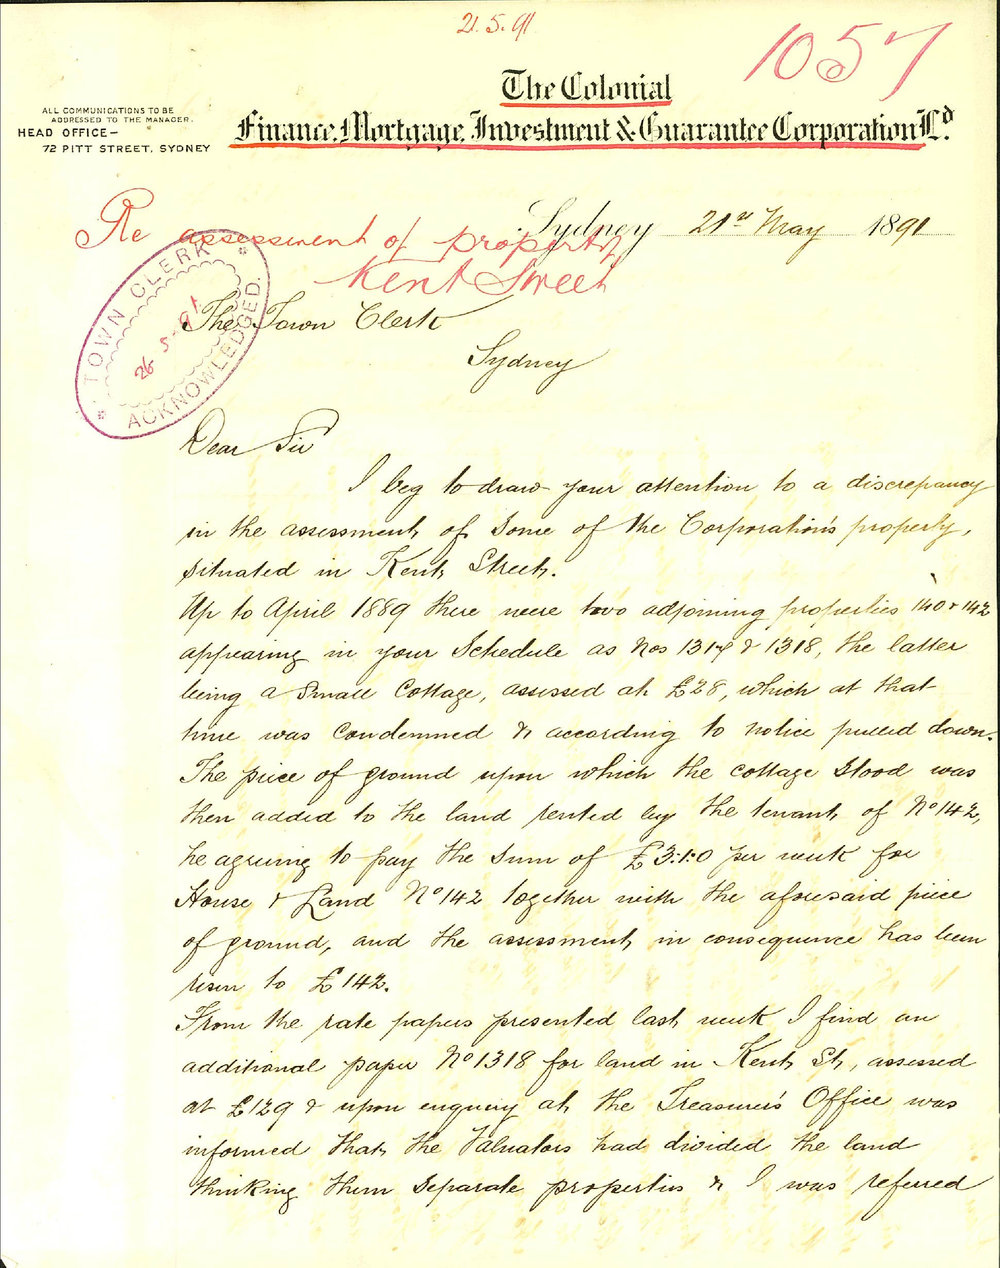 21.5.91
1057
The Colonial
Finance, Mortgage, Investment & Guarantee Corporation Ld.
ALL COMMUNICATIONS TO BE
ADDRESSED TO THE MANAGER.
HEAD OFFICE—
72 PITT STREET, SYDNEY
Sydney 21st May 1891
Re assessment of property
Kent Street
TOWN CLERK
26-5-91
ACKNOWLEDGED.
The Town Clerk
Sydney
Dear Sir
I beg to draw your attention to a discrepancy
in the assessment of some of the Corporation's property,
situated in Kent Street.
Up to April 1889 there were two adjoining properties 140 & 142
appearing in your Schedule as Nos 1317 & 1318, the latter
being a small cottage, assessed at £28, which at that
time was condemned & according to notice pulled down.
The piece of ground upon which the cottage stood was
then added to the land rented by the tenant of No 142,
he agreeing to pay the sum of £3:1:0 per week for
House & Land No 142 together with the aforesaid piece
of ground, and the assessment in consequence has been
risen to £142.
From the rate papers presented last week I find an
additional paper No 1318 for land in Kent St, assessed
at £129 & upon enquiry at the Treasurer's Office was
informed that the Valuators had divided the land
thinking them separate properties & I was referred